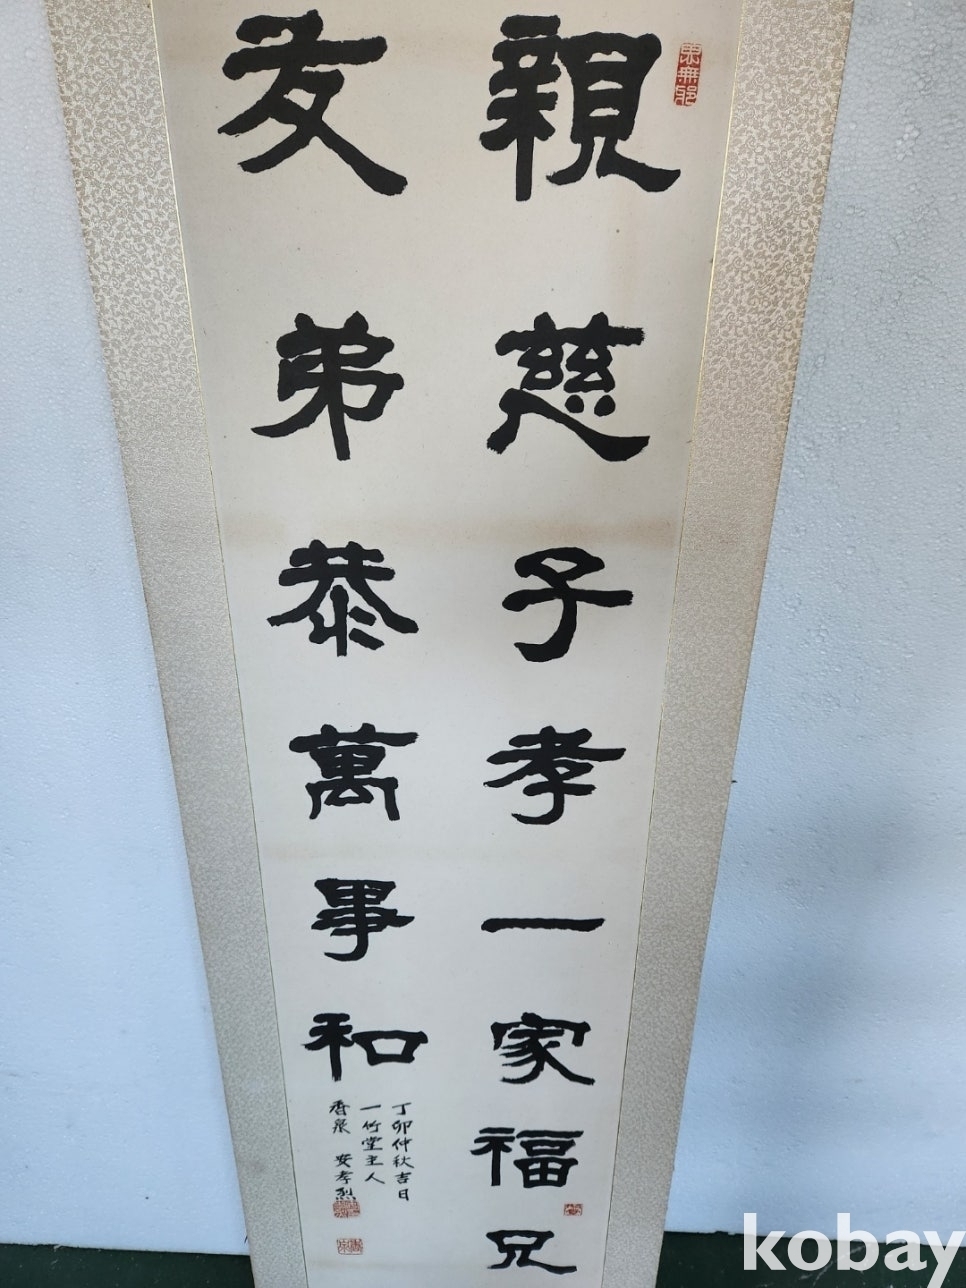 思無邪
親慈子孝一家福兄
友弟恭萬事和
丁卯仲秋吉日
一竹堂主人
香泉 安孝烈
kobay